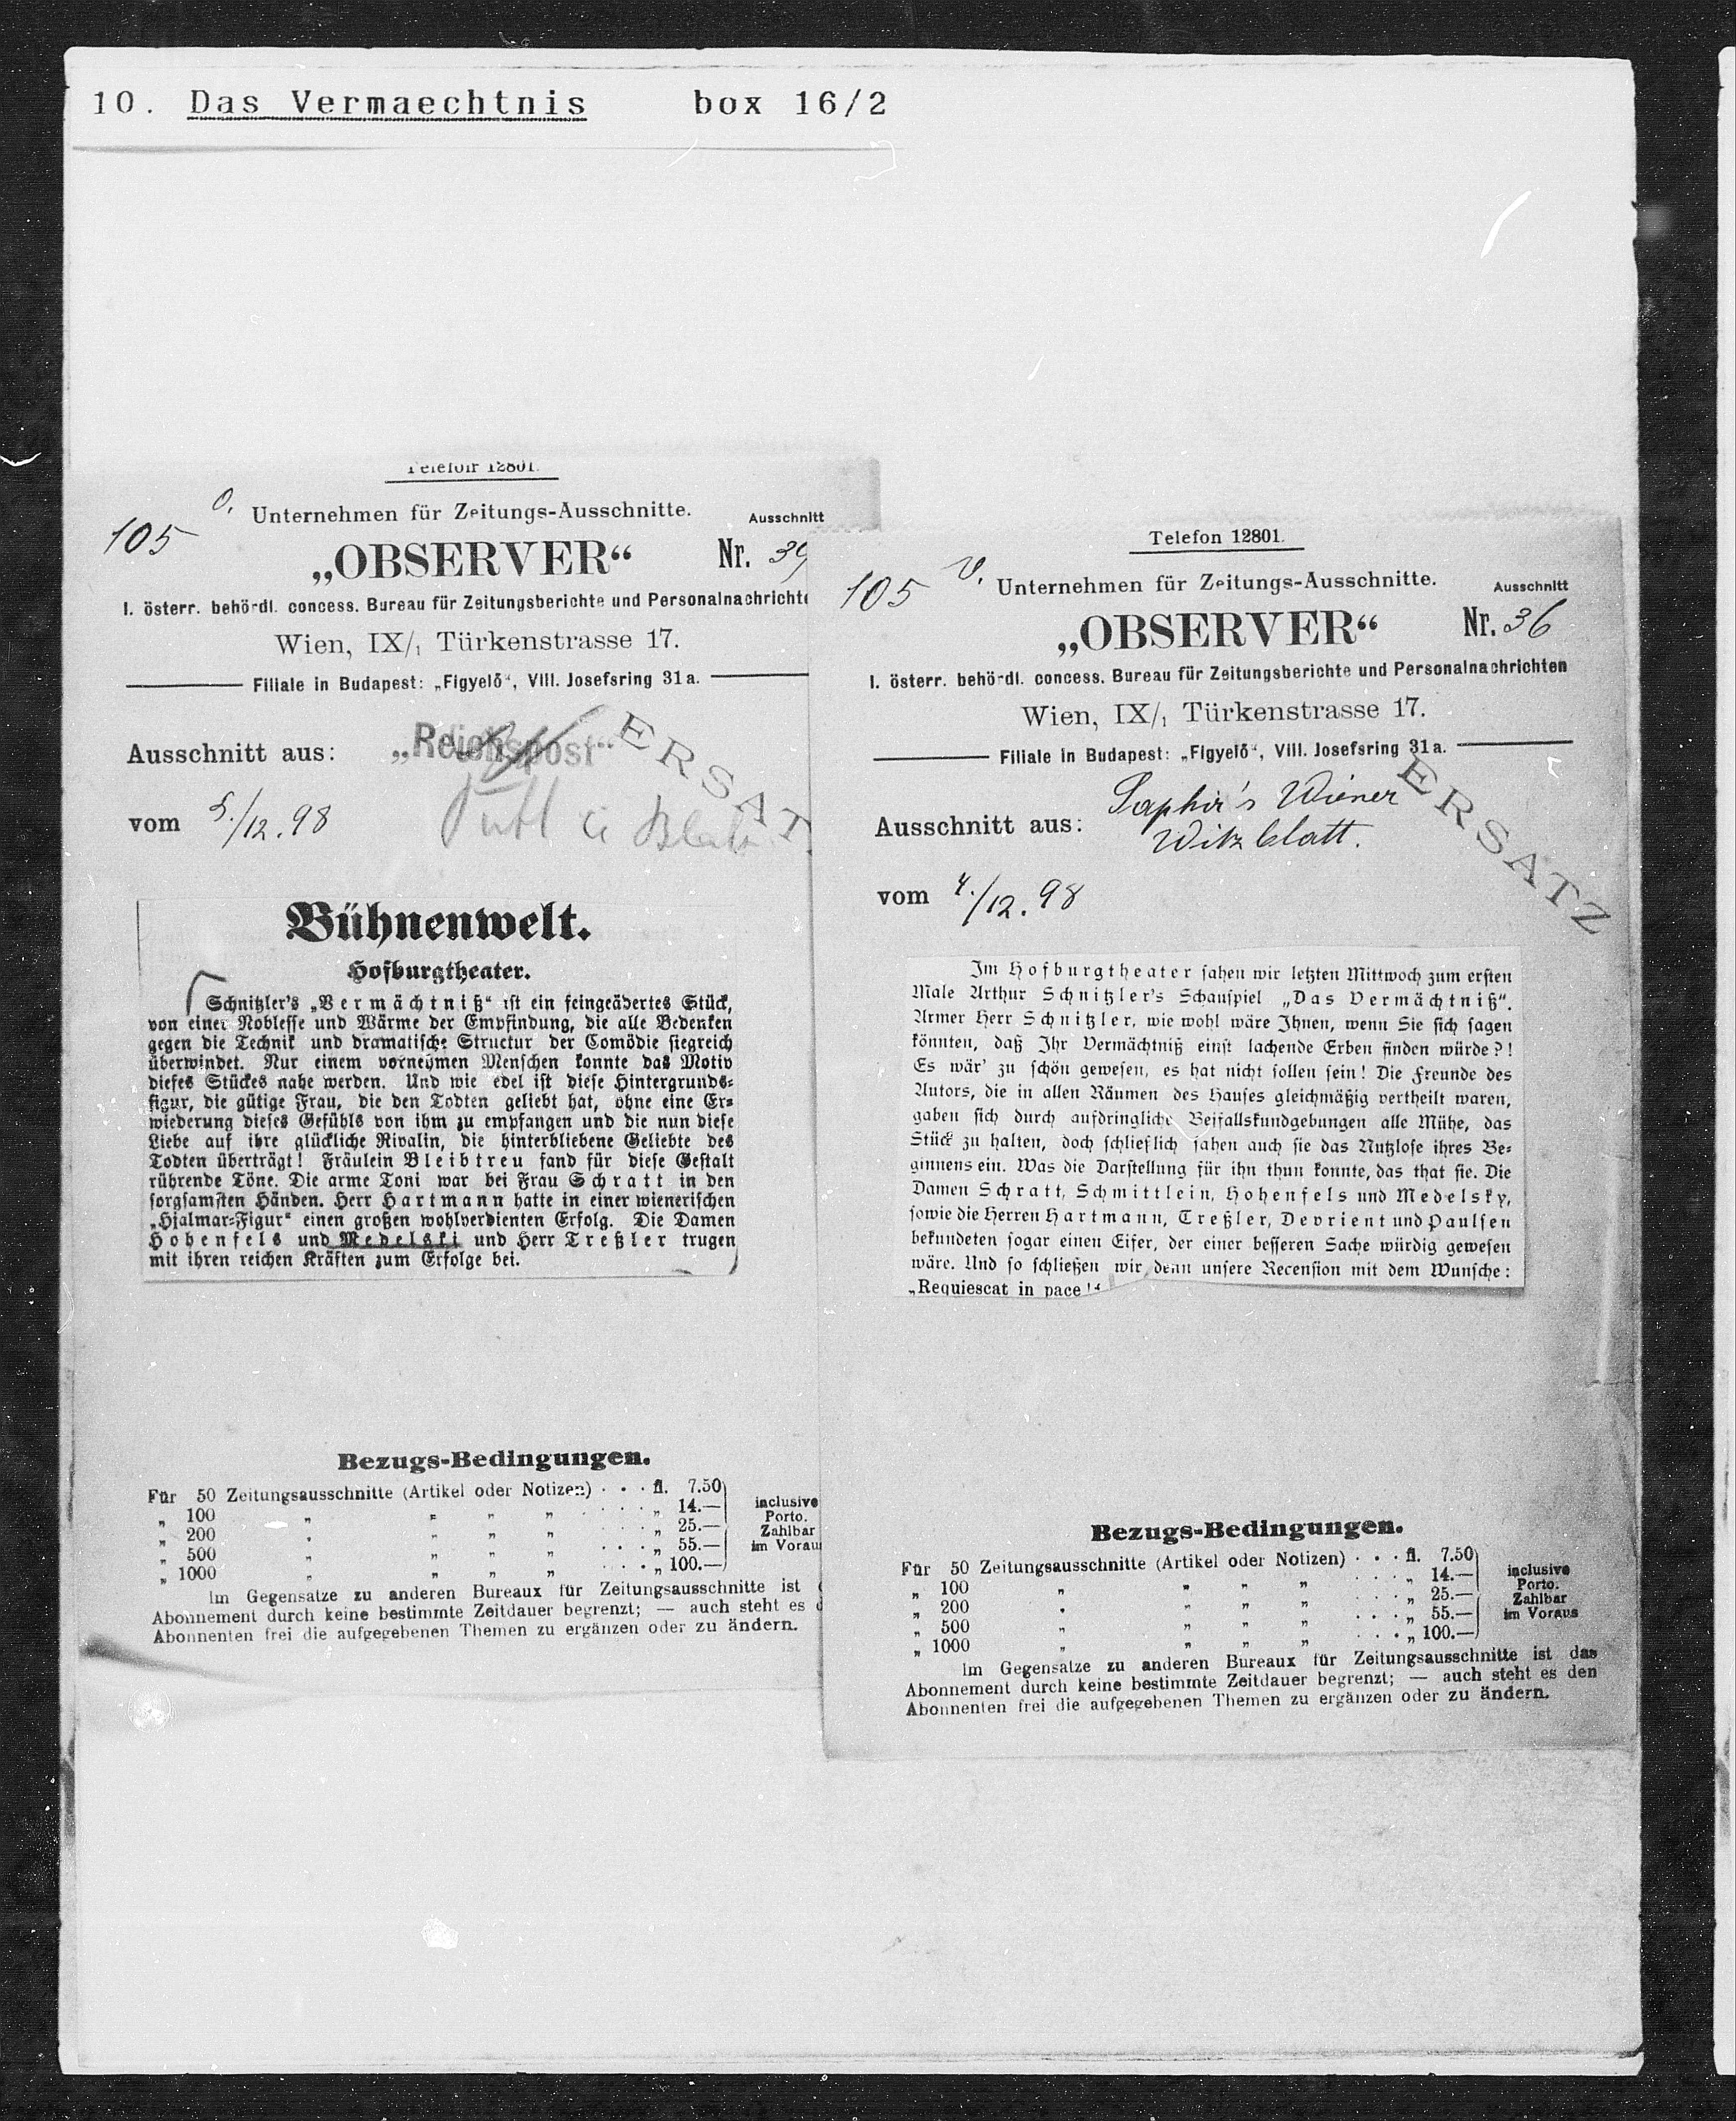 10. Das Vermaechtnis box 16/2
Telefon 12801.
105
Unternehmen für Zeitungs-Ausschnitte.
Ausschnitt
„OBSERVER“
Nr. 39
I. österr. behördl. concess. Bureau für Zeitungsberichte und Personalnachrichte
Wien, IX/1 Türkenstrasse 17.
Filiale in Budapest: „Figyelő“, VIII. Josefsring 31a.
Ausschnitt aus: „Reichspost“
ERSAT
vom 5./12.98
Bühnenwelt.
Hofburgtheater.
Schnitzler's „Vermächtniß“ ist ein feingeädertes Stück,
von einer Noblesse und Wärme der Empfindung, die alle Bedenken
gegen die Technik und dramatische Structur der Comödie siegreich
überwindet. Nur einem vornehmen Menschen konnte das Motiv
dieses Stückes nahe werden. Und wie edel ist diese Hintergrunds-
figur, die gütige Frau, die den Todten geliebt hat, ohne eine Er-
wiederung dieses Gefühls von ihm zu empfangen und die nun diese
Liebe auf ihre glückliche Rivalin, die hinterbliebene Geliebte des
Todten überträgt! Fräulein Bleibtreu fand für diese Gestalt
rührende Töne. Die arme Toni war bei Frau Schratt in den
sorgsamsten Händen. Herr Hartmann hatte in einer wienerischen
„Hjalmar-Figur“ einen großen wohlverdienten Erfolg. Die Damen
Hohenfels und Medelski und Herr Treßler trugen
mit ihren reichen Kräften zum Erfolge bei.
Bezugs-Bedingungen.
Für 50 Zeitungsausschnitte (Artikel oder Notizen) . . . fl. 7.50
„ 100 „ „ „ „ . . . . „ 14.—
„ 200 „ „ „ „ . . . . „ 25.—
„ 500 „ „ „ „ . . . „ 55.—
„ 1000 „ „ „ „ . . . . „ 100.—
inclusive
Porto.
Zahlbar
im Vorau
Im Gegensatze zu anderen Bureaux für Zeitungsausschnitte ist
Abonnement durch keine bestimmte Zeitdauer begrenzt; — auch steht es d
Abonnenten frei die aufgegebenen Themen zu ergänzen oder zu ändern.
Telefon 12801.
105
Unternehmen für Zeitungs-Ausschnitte.
Ausschnitt
„OBSERVER“
Nr. 36
I. österr. behördl. concess. Bureau für Zeitungsberichte und Personalnachrichten
Wien, IX/1 Türkenstrasse 17.
Filiale in Budapest: „Figyelő“, VIII. Josefsring 31a.
Ausschnitt aus: Saphir's Wiener
Witzblatt.
ERSATZ
vom 4./12.98
Im Hofburgtheater sahen wir letzten Mittwoch zum ersten
Male Arthur Schnitzler's Schauspiel „Das Vermächtniß“.
Armer Herr Schnitzler, wie wohl wäre Ihnen, wenn Sie sich sagen
könnten, daß Ihr Vermächtniß einst lachende Erben finden würde?!
Es wär' zu schön gewesen, es hat nicht sollen sein! Die Freunde des
Autors, die in allen Räumen des Hauses gleichmäßig vertheilt waren,
gaben sich durch aufdringliche Beifallskundgebungen alle Mühe, das
Stück zu halten, doch schließlich sahen auch sie das Nutzlose ihres Be-
ginnens ein. Was die Darstellung für ihn thun konnte, das that sie. Die
Damen Schratt, Schmittlein, Hohenfels und Medelsky,
sowie die Herren Hartmann, Treßler, Devrient und Paulsen
bekundeten sogar einen Eifer, der einer besseren Sache würdig gewesen
wäre. Und so schließen wir denn unsere Recension mit dem Wunsche:
„Requiescat in pace!“
Bezugs-Bedingungen.
Für 50 Zeitungsausschnitte (Artikel oder Notizen) . . . fl. 7.50
„ 100 „ „ „ „ . . . . „ 14.—
„ 200 „ „ „ „ . . . . „ 25.—
„ 500 „ „ „ „ . . . . „ 55.—
„ 1000 „ „ „ „ . . . . „ 100.—
inclusive
Porto.
Zahlbar
im Voraus
Im Gegensatze zu anderen Bureaux für Zeitungsausschnitte ist das
Abonnement durch keine bestimmte Zeitdauer begrenzt; — auch steht es den
Abonnenten frei die aufgegebenen Themen zu ergänzen oder zu ändern.